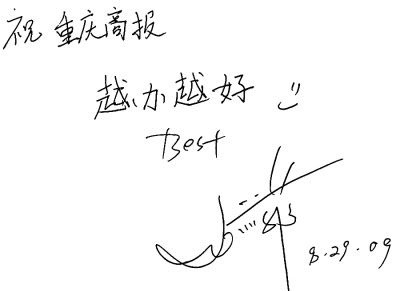 祝 重庆商报
越办越好
Best
8.29.09